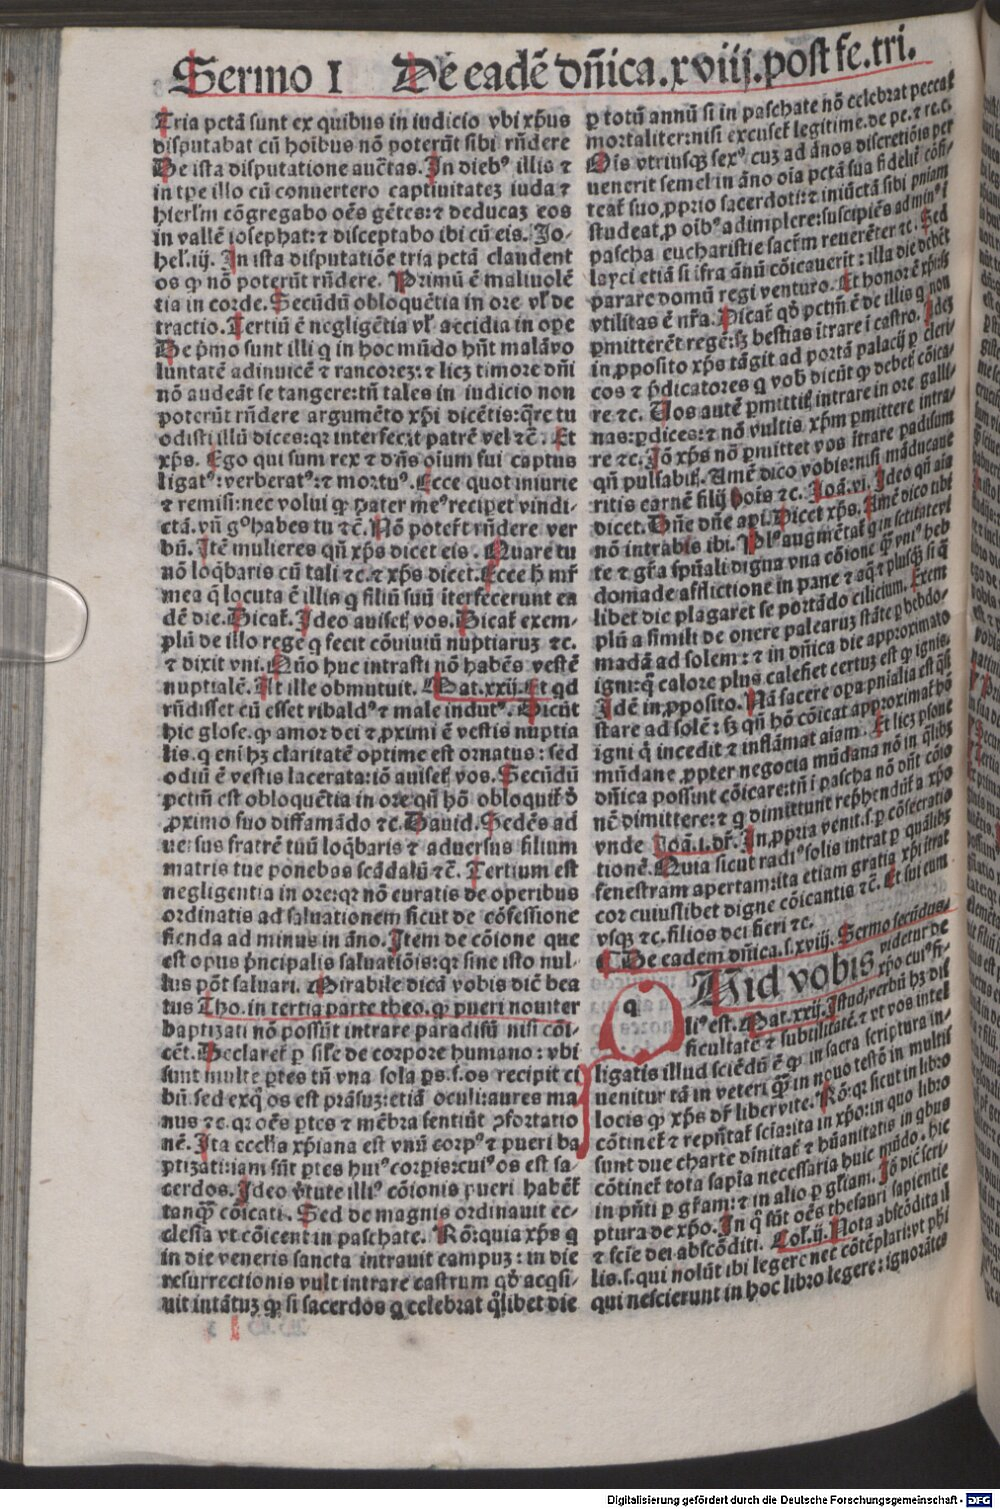 Sermo I De eadē dn̄ica.xviij.post fe.tri.
Tria pctā sunt ex quibus in iudicio vbi xp̄us
disputabat cū hoibus nō poterūt sibi rn̄dere
De ista disputatione auc̄tas. In diebꝰ illis ⁊
in tpe illo cū conuertero captiuitatez iuda ⁊
hierl̄m cōgregabo oēs gētes: ⁊ deducaz eos
in vallē iosephat: ⁊ disceptabo ibi cū eis. Jo-
hel̓.iij. In ista disputatiōe tria pctā claudent
os ꝙ nō poterūt rn̄dere. Primū ē maliuolē
tia in corde. Secūdū obloquētia in ore vl̓ de
tractio. Tertiū ē negligētia vl̓ accidia in ope
De p̄mo sunt illi q in hoc mūdo hn̄t malāvo
luntatē adinuicē ⁊ rancorez: ⁊ licz timore dn̄i
nō audeāt se tangere: tn̄ tales in iudicio non
poterūt rn̄dere argumēto xp̄i dicētis: q̄re tu
odisti illū dices: qꝛ interfecit patrē vel ⁊c̄. Et
xp̄s. Ego qui sum rex ⁊ dn̄s oīum fui captus
ligatꝰ: verberatꝰ: ⁊ mortuꝰ. Ecce quot iniurie
⁊ remisi: nec volui ꝙ pater meꝰ recipet vindi-
ctā. vn̄ gͦ habes tu ⁊c̄. Nō poter̄t rn̄dere ver
bū. Itē mulieres qn̄ xp̄s dicet eis. Quare tu
nō loq̄baris cū tali ⁊c. ⁊ xp̄s dicet. Ecce h mr̄
mea q̄ locuta ē illis q filiū suū īterfecerunt ea
dē die. Dicat̄. Ideo auisetꝭ vos. Dicat̄ exem-
plū de illo rege q fecit cōuiuiū nuptiaruꝫ ⁊c.
⁊ dixit vni. Quō huc intrasti nō habēs vestē
nuptialē. At ille obmutuit. Mat.xxij. Et qd
rn̄disset cū esset ribaldꝰ ⁊ male indutꝰ. Dicūt
hic glose. ꝙ amor dei ⁊ ꝓximi ē vestis nuptia
lis. q eni hꝫ claritatē optime est ornatus: sed
odiū ē vestis lacerata: iō auisetꝭ vos. Secūdū
pctm̄ est obloquētia in ore qn̄ hō obloquit̄ d̄
ꝓximo suo diffamādo ⁊c. Dauid. Sedēs ad
uersus fratrē tuū loq̄baris ⁊ aduersus filium
matris tue ponebas scādalū ⁊c̄. Tertium est
negligentia in ore: qꝛ nō curatis de operibus
ordinatis ad saluationem sicut de cōfessione
fienda ad minus in āno. Item de cōione que
est opus p̄ncipalis saluatiōis: qꝛ sine isto nul-
lus pōt saluari. Mirabile dicā vobis dic̄ bea
tus Tho. in tertia parte theo. ꝙ pueri nouiter
baptizati nō possūt intrare paradisū nisi cōi-
cēt. Declaret̄ ꝑ sil̓e de corpore humano: vbi
sunt multe ꝑtes tn̄ vna sola ꝑs.s.os recipit ci
bū. sed exq̄ os est prāsuꝫ: etiā oculi: aures ma
nus ⁊c. qꝛ oēs ꝑtes ⁊ mēbra sentiūt ꝯfortatio
nē. Ita ecclīa xp̄iana est vnū corpꝰ ⁊ pueri ba
ptizati: iam sūt ꝑtes huiꝰ corpis: cuiꝰ os est sa-
cerdos. Ideo v̄tute illiꝰ cōionis pueri habēt̄
tanqꝫ̄ cōicati. Sed de magnis ordinauit ec-
clesia vt cōicent in paschate. Rō: quia xp̄s q
in die veneris sancta intrauit campuꝫ: in die
resurrectionis vult intrare castrum qd̄ acq̄si-
uit intātuꝫ ꝙ si sacerdos q celebrat q̄libet die
ꝑ totū annū si in paschate nō celebrat peccat
mortaliter: nisi excuset̄ legitime. de pe. ⁊ re. c.
Ois vtriusqꝫ sexꝰ cuꝫ ad ānos discretiōis per
uenerit semel in āno oia pctā sua fideliꝉ cōfi-
teat̄ suo ꝓprio sacerdoti: ⁊ iniūctā sibi pniam
studeat ꝓ oibꝰ adimplere: suscipiēs ad minꝰ ī
pascha eucharistie sacr̄m reuerēter ⁊c. Sed
layci etiā si īfra ānū cōicauerit: illa die debēt
parare domū regi venturo. Et honor ē xp̄i: sꝫ
vtilitas ē nr̄a. Dicat̄ qd̄ pctm̄ ē de illis q non
ꝑmitterēt regē: sꝫ bestias ītrare ī castro. Idez
in ꝓposito xp̄s tāgit ad portā palacij ꝑ cleri-
cos ⁊ p̄dicatores q vob̄ dicūt ꝙ debetꝭ cōica-
re ⁊c. Uos autē ꝑmittitꝭ intrare in ore galli-
nas: ꝑdices: ⁊ nō vultis xp̄m ꝑmittere intra-
re ⁊c. Iō xp̄s nō ꝑmittet vos ītrare padisum
qn̄ pulsabitꝭ. Amē dico vobis: nisi māducaue
ritis carnē filij hois ⁊c. Joā.vi. Ideo qn̄ aīa
dicet. Dn̄e dn̄e api. Dicet xp̄s. Amē dico tibi
nō intrabis ibi. Plꝰ augmētat̄
te ⁊ gr̄a spūali digna vna cōione qꝫ̄ vniꝰ heb
domade afflictione in pane ⁊ aq̄ ⁊ plusqꝫ si q̄
libet die plagaret se portādo cilicium. Exem
plū a simili de onere palearuꝫ stāte ꝑ hebdo-
madā ad solem: ⁊ in dn̄ica die approximato
igni: q̄ calore plus calefiet certuꝫ est ꝙ ignis.
Idē in ꝓposito. Nā facere opa pnialia est q̄si
stare ad solē: sꝫ qn̄ hō cōicat approximat̄ hō
igni q̄ incedit ⁊ inflāmat aiam. Et licꝫ psone
mūdane ꝓpter negocia mūdana nō in q̄libꝫ
dn̄ica possint cōicare: tn̄ ī pascha nō dn̄t cōio
nē dimittere: ⁊ q dimittunt rep̄hendūt̄ a xp̄o
vnde Joā.i. dr̄. In ꝓpria venit.s. ꝑ cōsecratio
tionē. Quia sicut radiꝰ solis intrat ꝑ quālibꝫ
fenestram apertam: ita etiam gratia xp̄i ītrat
cor cuiuslibet digne cōicantis ⁊c̄. Et sui eum
vsqꝫ ⁊c. filios dei fieri ⁊c.
De eadem dn̄ica.s.xviij. Sermo secūdus.
Quid vobis videtur de
xp̄o cuiꝰ fi-
liꝰ est. Mat.xxij. Istud verbū hꝫ dif
ficultatē ⁊ subtilitatē. ⁊ vt vos intel
ligatis illud sciēdū ē ꝙ in sacra scriptura in-
uenitur tā in veteri qꝫ̄ in nouo testō in multis
locis ꝙ xp̄s dr̄ liber vite. Rō: qꝛ sicut in libro
cōtinet̄ ⁊ repūtat̄ scīa: ita in xp̄o: in quo libro
sunt due charte diuitat̄ ⁊ hūanitatis in qbus
cōtinet̄ tota sapīa necessaria huic mūdo. hic
in pn̄ti ꝑ gr̄am: ⁊ in alio ꝑ gl̄iam. Iō dic̄ scri-
ptura de xp̄o. In q̄ sūt oēs thesauri sapientie
⁊ scīe dei abscōditi. Col̓.ij. Nota abscōdita il
lis.s. qui nolūt ibi legere nec cōtēplari: vt phi
qui nescierunt in hoc libro legere: ignorātes
Digitalisierung gefördert durch die Deutsche Forschungsgemeinschaft - DFG